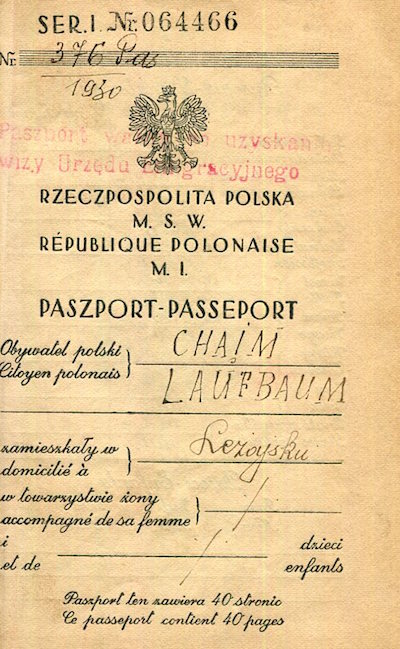 SER. I. Nr. 064466
Nr. 376 Pas
1930
Paszport uzyskan
wizy Urzędu Emigracyjnego
RZECZPOSPOLITA POLSKA
M. S. W.
RÉPUBLIQUE POLONAISE
M. I.
PASZPORT-PASSEPORT
Obywatel polski
Citoyen polonais
CHAIM
LAUFBAUM
zamieszkały w
domicilié à
Leżajsku
w towarzystwie żony
accompagné de sa femme
/
i / dzieci
et de enfants
Paszport ten zawiera 40 stronic
Ce passeport contient 40 pages